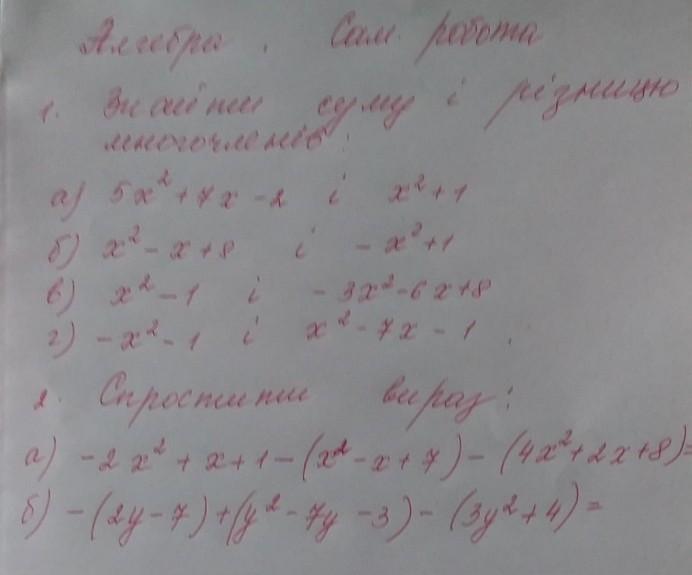 Алгебра. Сам. робота
1. Знайти суму і різницю
многочленів:
а) 5x² + 7x - 2 і x² + 1
б) x² - x + 8 і - x² + 1
в) x² - 1 і - 3x² - 6x + 8
г) - x² - 1 і x² - 7x - 1.
2. Спростити вираз:
а) - 2x² + x + 1 - (x² - x + 7) - (4x² + 2x + 8) =
б) - (2y - 7) + (y² - 7y - 3) - (3y² + 4) =